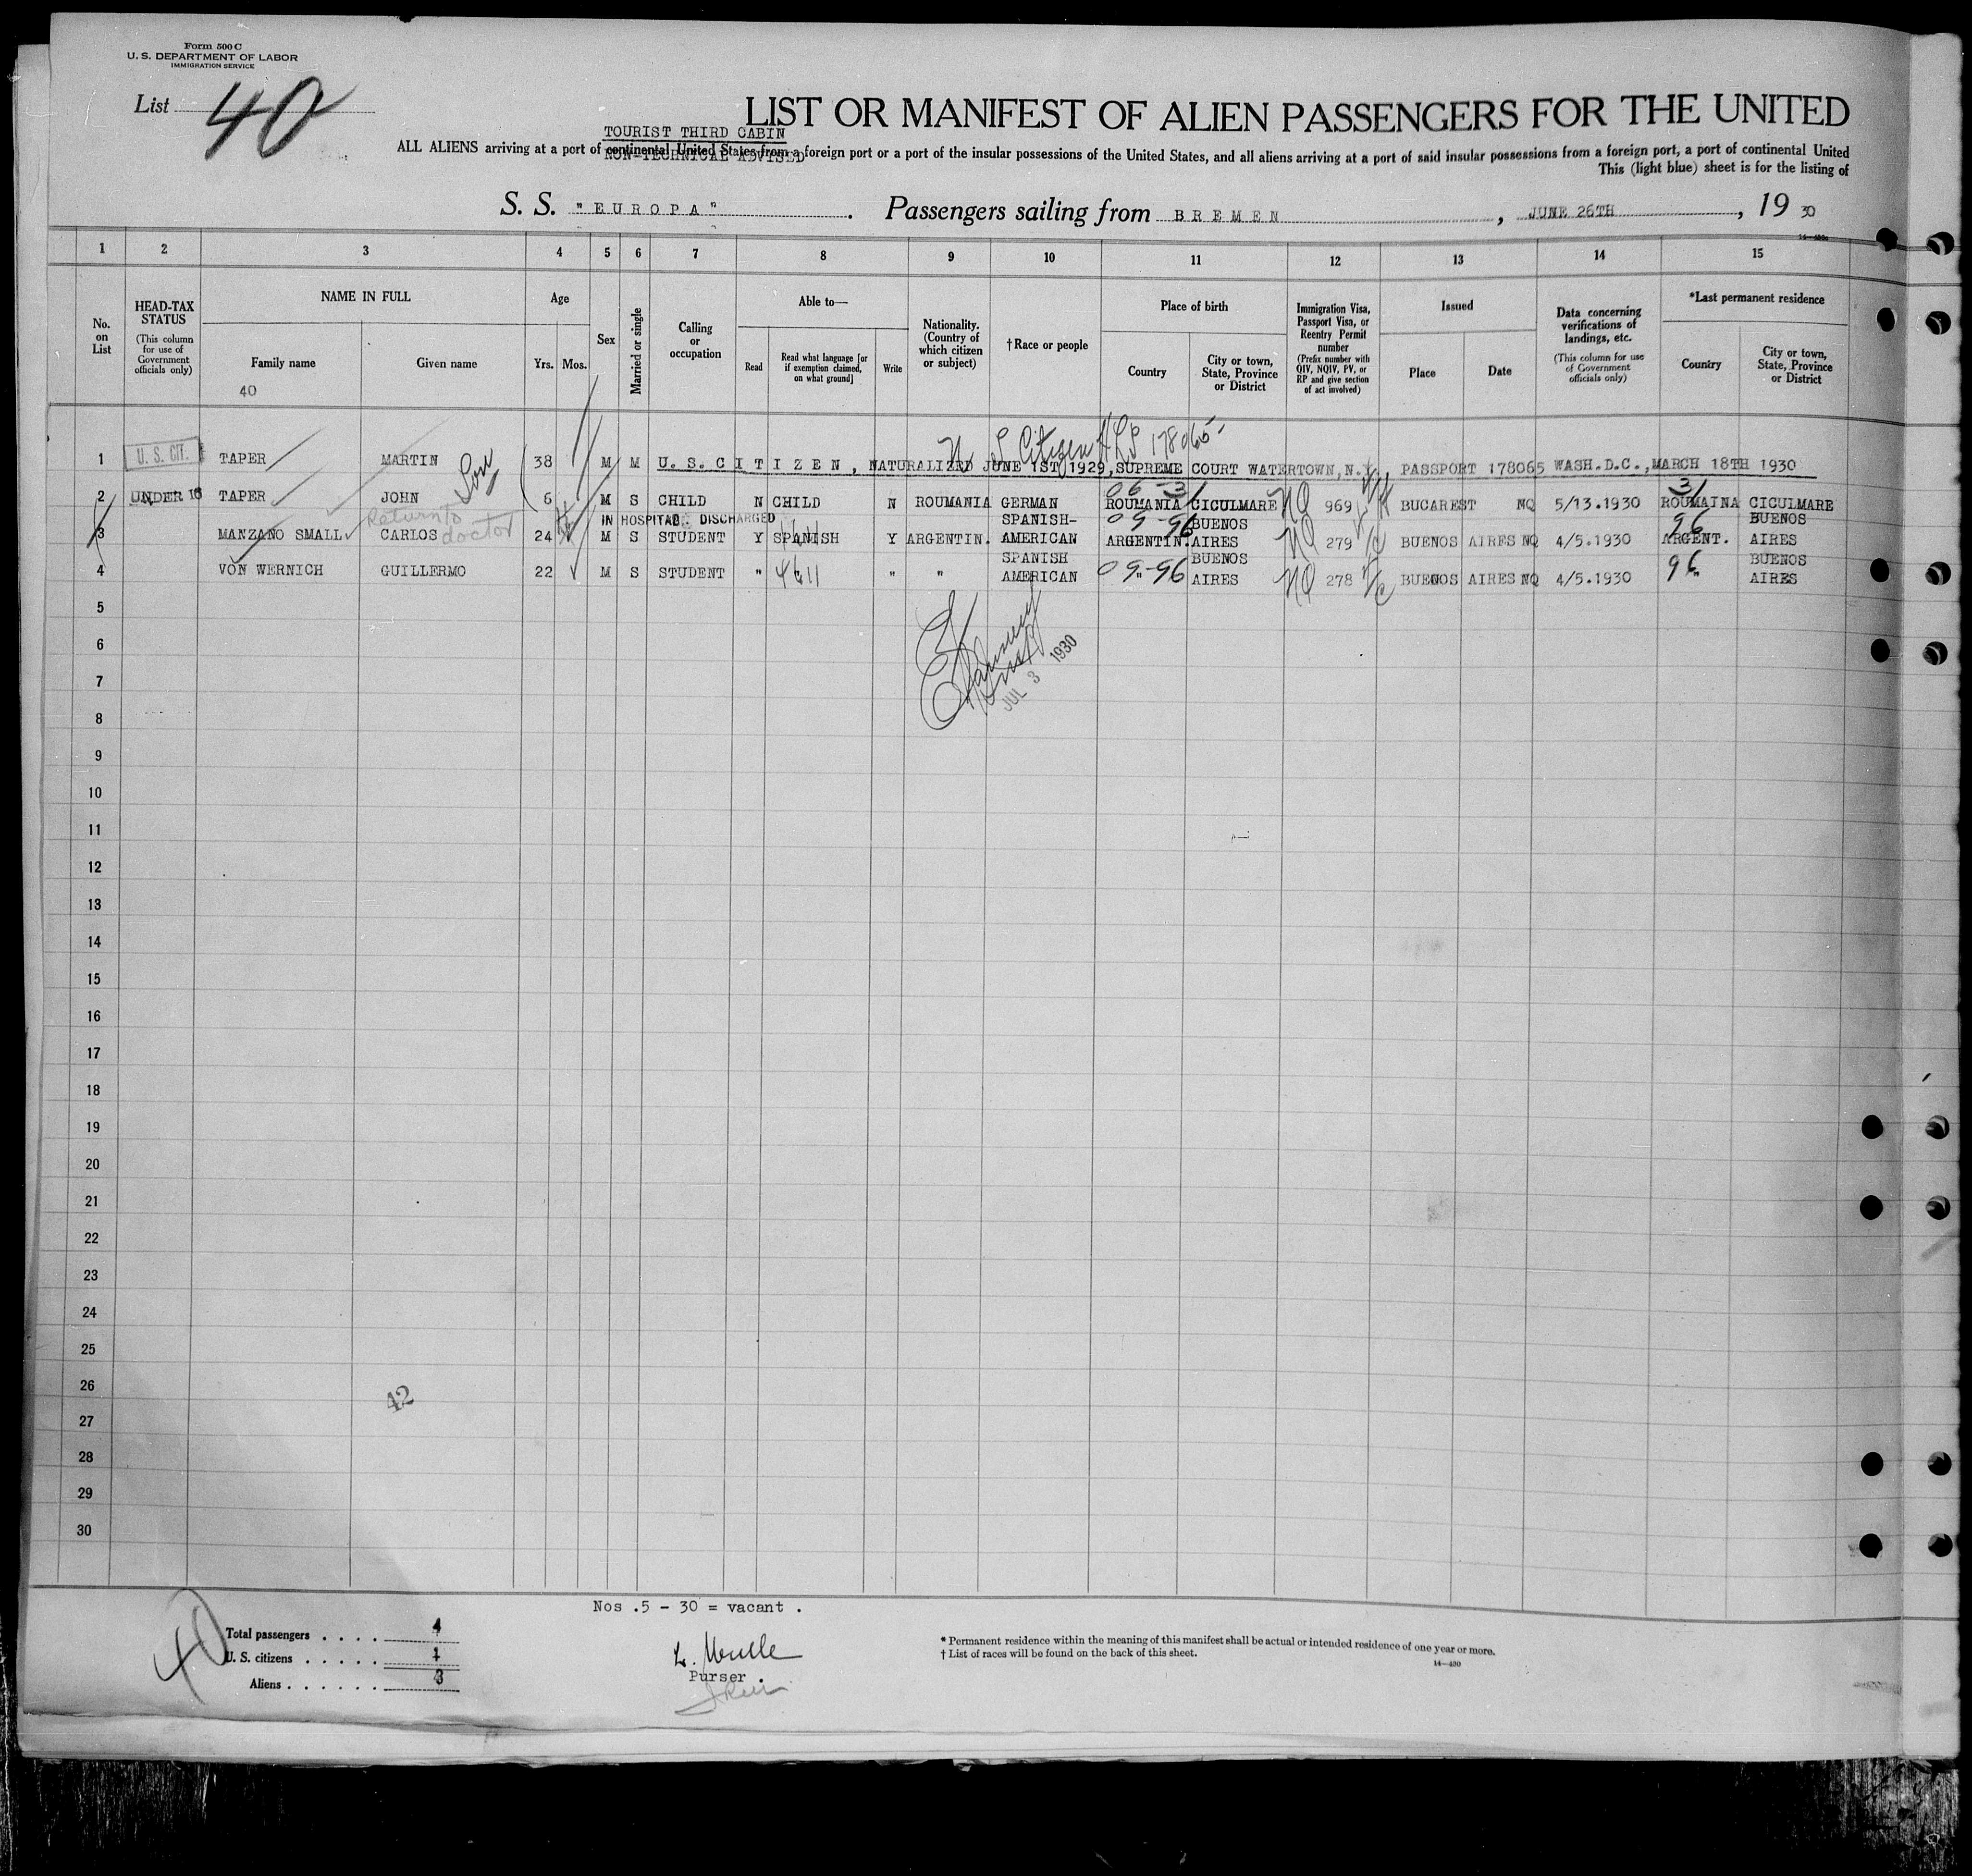 Form 500 C
U. S. DEPARTMENT OF LABOR
IMMIGRATION SERVICE
List 40
LIST OR MANIFEST OF ALIEN PASSENGERS FOR THE UNITED
TOURIST THIRD CABIN
NON-TECHNICAL ADVISED
ALL ALIENS arriving at a port of continental United States from a foreign port or a port of the insular possessions of the United States, and all aliens arriving at a port of said insular possessions from a foreign port, a port of continental United
This (light blue) sheet is for the listing of
S. S. "EUROPA" . Passengers sailing from BREMEN , JUNE 26TH , 19 30
1 2 3 4 5 6 7 8 9 10 11 12 13 14 15
No. on List
HEAD-TAX STATUS
(This column for use of Government officials only)
NAME IN FULL
Family name
Given name
40
Age
Yrs. Mos.
Sex
Married or single
Calling or occupation
Able to—
Read
Read what language [or if exemption claimed, on what ground]
Write
Nationality. (Country of which citizen or subject)
†Race or people
Place of birth
Country
City or town, State, Province or District
Immigration Visa, Passport Visa, or Reentry Permit number
(Prefix number with QIV, NQIV, PV, or RP and give section of act involved)
Issued
Place
Date
Data concerning verifications of landings, etc.
(This column for use of Government officials only)
*Last permanent residence
Country
City or town, State, Province or District
U S Citizen 178065
1 U. S. CIT. TAPER MARTIN 38 M M U.S.CITIZEN, NATURALIZED JUNE 1ST 1929, SUPREME COURT WATERTOWN, N.Y., PASSPORT 178065 WASH.D.C., MARCH 18TH 1930
Son
06-31 31
2 UNDER 16 TAPER JOHN 6 M S CHILD N CHILD N ROUMANIA GERMAN ROUMANIA CICULMARE NQ 969 BUCAREST NQ 5/13.1930 ROUMAINA CICULMARE
Return to doctor
IN HOSPITAL DISCHARGED
SPANISH- 09-96 BUENOS 96 BUENOS
3 MANZANO SMALL CARLOS 24 M S STUDENT Y SPANISH Y ARGENTIN. AMERICAN ARGENTIN. AIRES NQ 279 BUENOS AIRES NQ 4/5.1930 ARGENT. AIRES
SPANISH BUENOS BUENOS
4 VON WERNICH GUILLERMO 22 M S STUDENT " " " AMERICAN 09-96 " AIRES NQ 278 BUENOS AIRES NQ 4/5.1930 96 " AIRES
5
6
JUL 3 1930
7
8
9
10
11
12
13
14
15
16
17
18
19
20
21
22
23
24
25
26
42
27
28
29
30
Nos .5 - 30 = vacant .
40
Total passengers . . . . 4
U. S. citizens . . . . . 1
Aliens . . . . . . 3
Purser .
* Permanent residence within the meaning of this manifest shall be actual or intended residence of one year or more.
† List of races will be found on the back of this sheet.
14—430